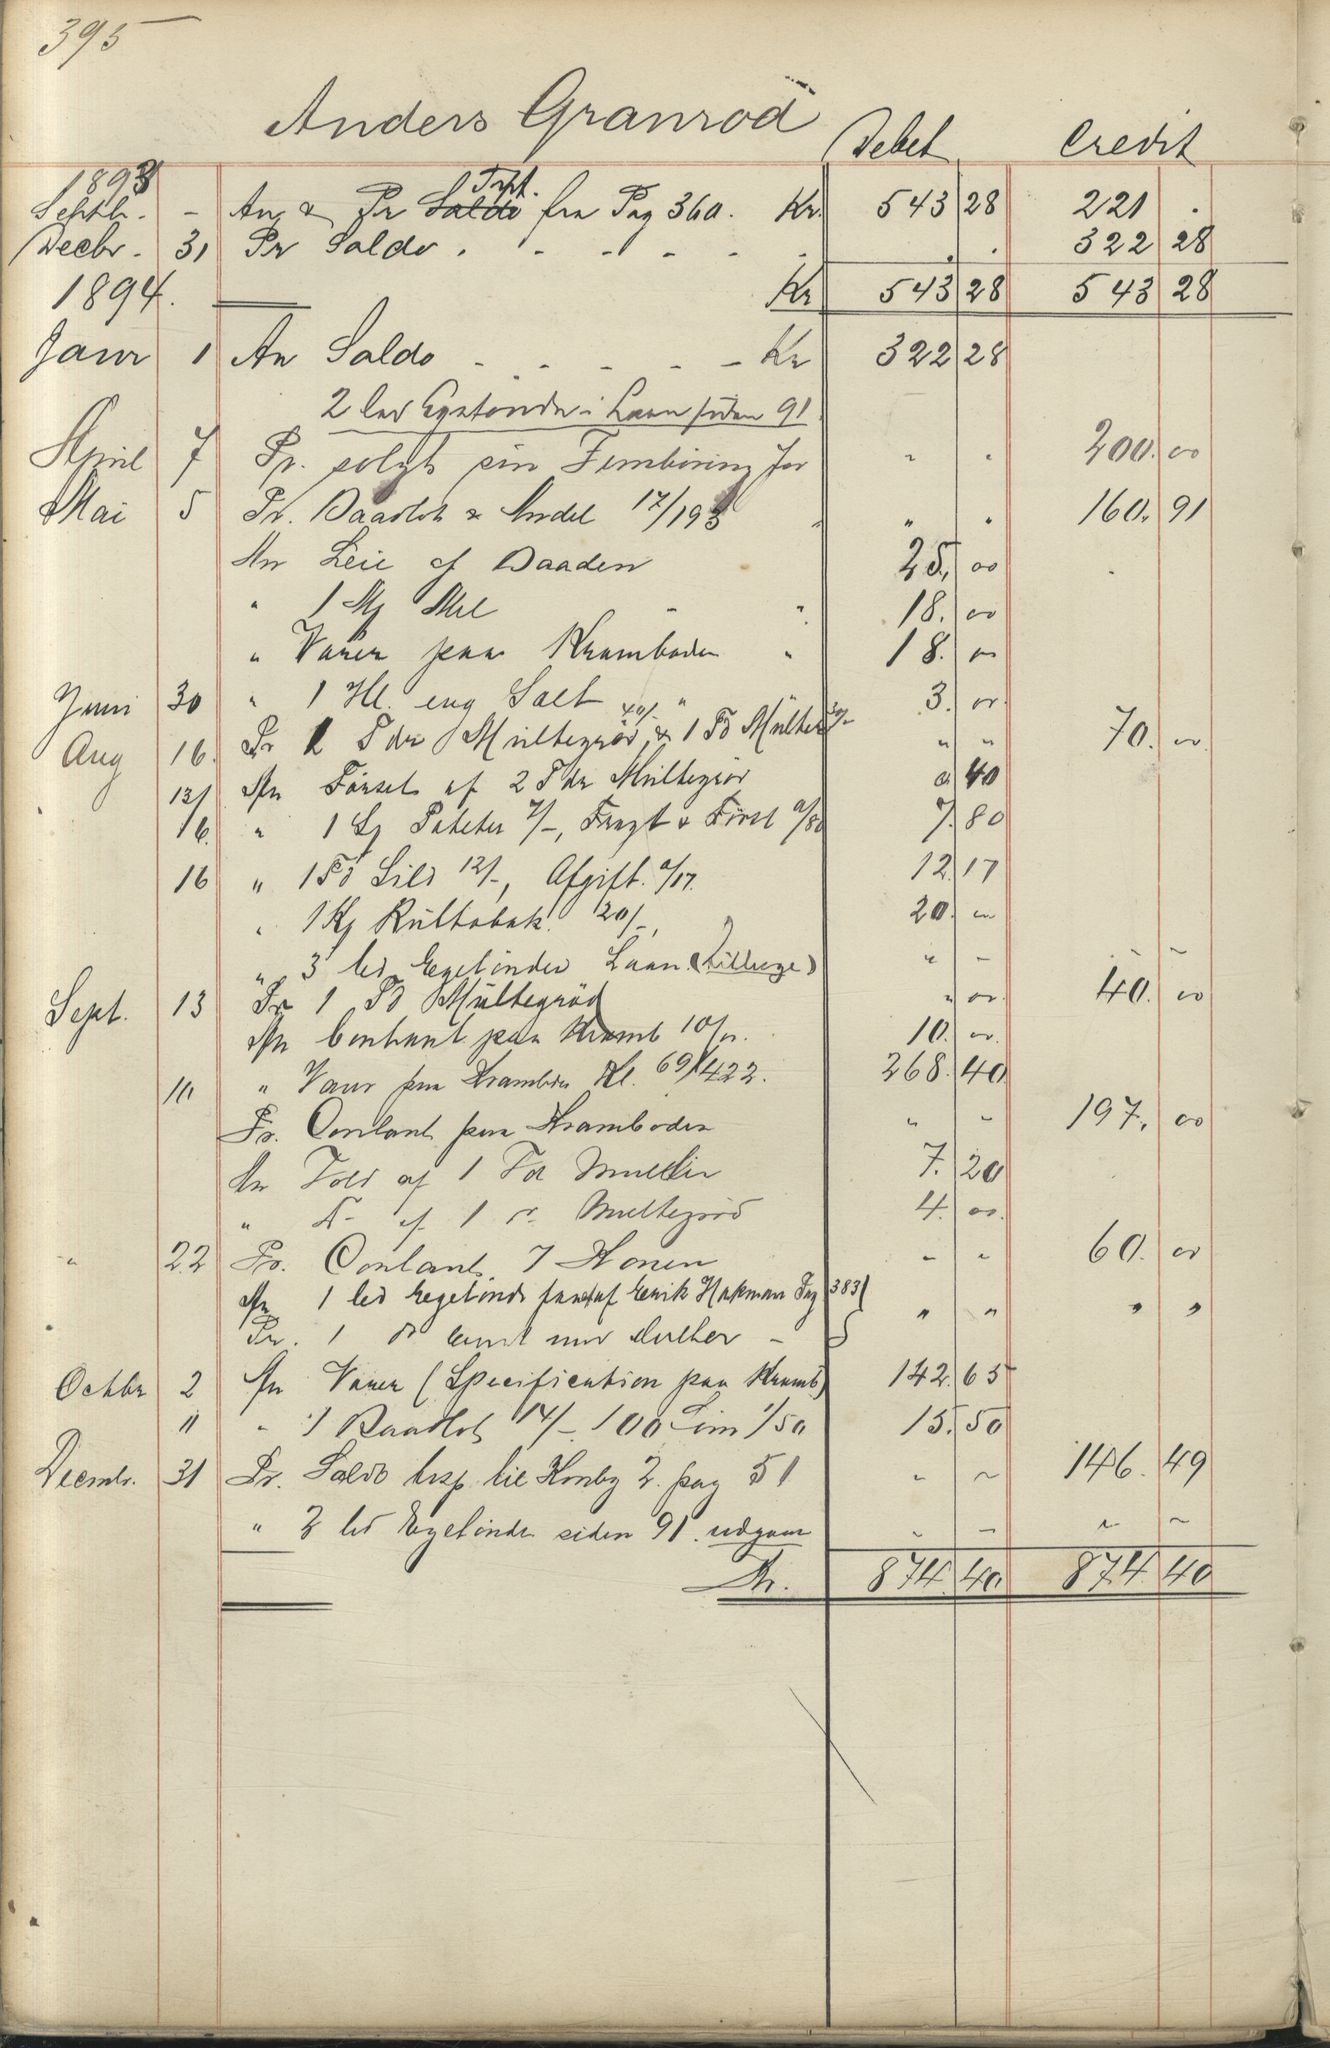 395
Anders Granrod
Debet Credit
1893
Septb. - An & Pr Saldo Trpt. fra Pag 360. Kr. 543 28 221 .
Decbr. 31 Pr Saldo . - - - - - . . 322 28
1894. Kr 543 28 543 28
Janr 1 An Saldo - - - - - Kr 322 28
2 led i Laan siden 91
April 7 Pr. solgt sin Fembøring for " " 200. 00
Mai 5 Pr. Baadlot & Andel 17/193 " " " 160. 91
An Leie af Baaden 25. 00
" 1 Mel " " 18. 00
" Varer paa Kramboden " 18. 00
Juni 30 " 1 Hl. eng Salt " 3. 00
Aug 16. Pr 1 Tdr Mültegröd 40/- & 1 Td Mülter 30/- " " 70. 00
12/ An Försel af 2 Tdr Mültegröd 0. 40
16. " 1 Poteter 7/-, Fragt & Först 0/80 7. 80
16 " 1 Td Sild 12/-, Afgift. 0/17. 12. 17
" 1 Kg Rültobak. 20/-, 20. -
" 3 led Egebönder Laan ( ) " - - -
Sept. 13 Pr 1 Td Mültegröd " 00 40. 00
An Contant paa Kramb 10/00. 10. 00.
10 " Varer paa Kramboden Kl. 69/422. 268. 40
Pr. Contant paa Kramboden " - 197. 00
An Told af 1 Td Multer 7. 20
" do af 1 do Multegröd 4. 00.
" 22 Pr. Contant Konen - - 60. 00
An 1 led Egebönde af Erik Hakman Pag 383 " " " "
Pr. 1 do med Multer -
Octbr 2 An Varer (Specification paa Kramb) 142. 65
11 " 1 Baadlot 14/- 100 1/50 15. 50
Decmb. 31 Pr. Saldo trsp. til Honbg 2. pag 51 - - 146. 49
" 2 led Egebönde siden 91. udgaar - - - -
Kr. 874. 40. 874 40